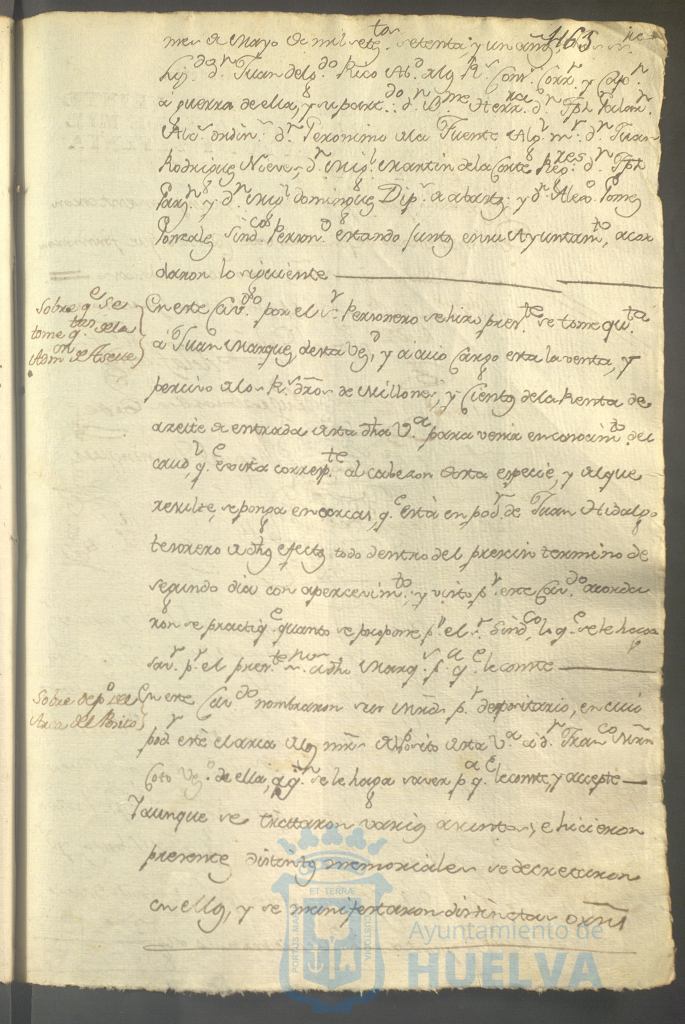 163
mes de Mayo de mil setez.tos setenta y un años
Liz.do d.n Juan del p.do Rico Ab.do Rs Corr.r y Cap.n
a guerra de ella, y
Alc.e ordin.o d.n Geronimo de la Fuente Alg.l m.r d.n Juan
Rodriguez Nieves, d.n Mig.l Martin de la Corte Reg.res d.n Jph
y d.n Mig.l dominguez Dip.s de abastos y d.n Alexo Gomez
Gonzalez Sind.co Person.o estando juntos en su Ayuntam.to, acor
daron lo siguiente
Sobre q.e se
tome q.tas de la
Adm.n de Aseite
En este Cav.do por el s.r Personero se hizo pres.te se tome qu.ta
a Juan Marquez desta Vez.d, y a cuio Cargo esta la venta, y
percivo de los R.s dros de Millones, y Cientos de la Renta de
azeite de entrada desta dha V.a para venir en conocim.to del
caud.l q.e exista corresp.te al cabezon desta especie, y el que
resulte, se ponga en arcas, q.e está en pod.r de Juan Hidalgo
tesorero a dhos efectos todo dentro del preciso termino de
segundo dia con apercevim.to, y visto p.r este Cav.do acorda
ron se practiq.e quanto se propone p.r el s.r Sind.co lo q.e se le haga
sav.r p.r el pres.te a dho Marq.z p.a q.e le conste
Sobre dep.o del
Arca del Posito
En este Cav.do nombraron sus Mrds p.r depositario, en cuio
pod.r esté el arca de los mrs del Posito desta V.a a d.n Fran.co Mrn
Coto Vez.o de ella, a q.n se le haga saver p.a q.e le conste, y accepte
Yaunque se trataron varios asuntos, e hicieron
presente distintos memoriales se decretaron
en ellos, y se manifestaron distintas
Ayuntamiento de
HUELVA